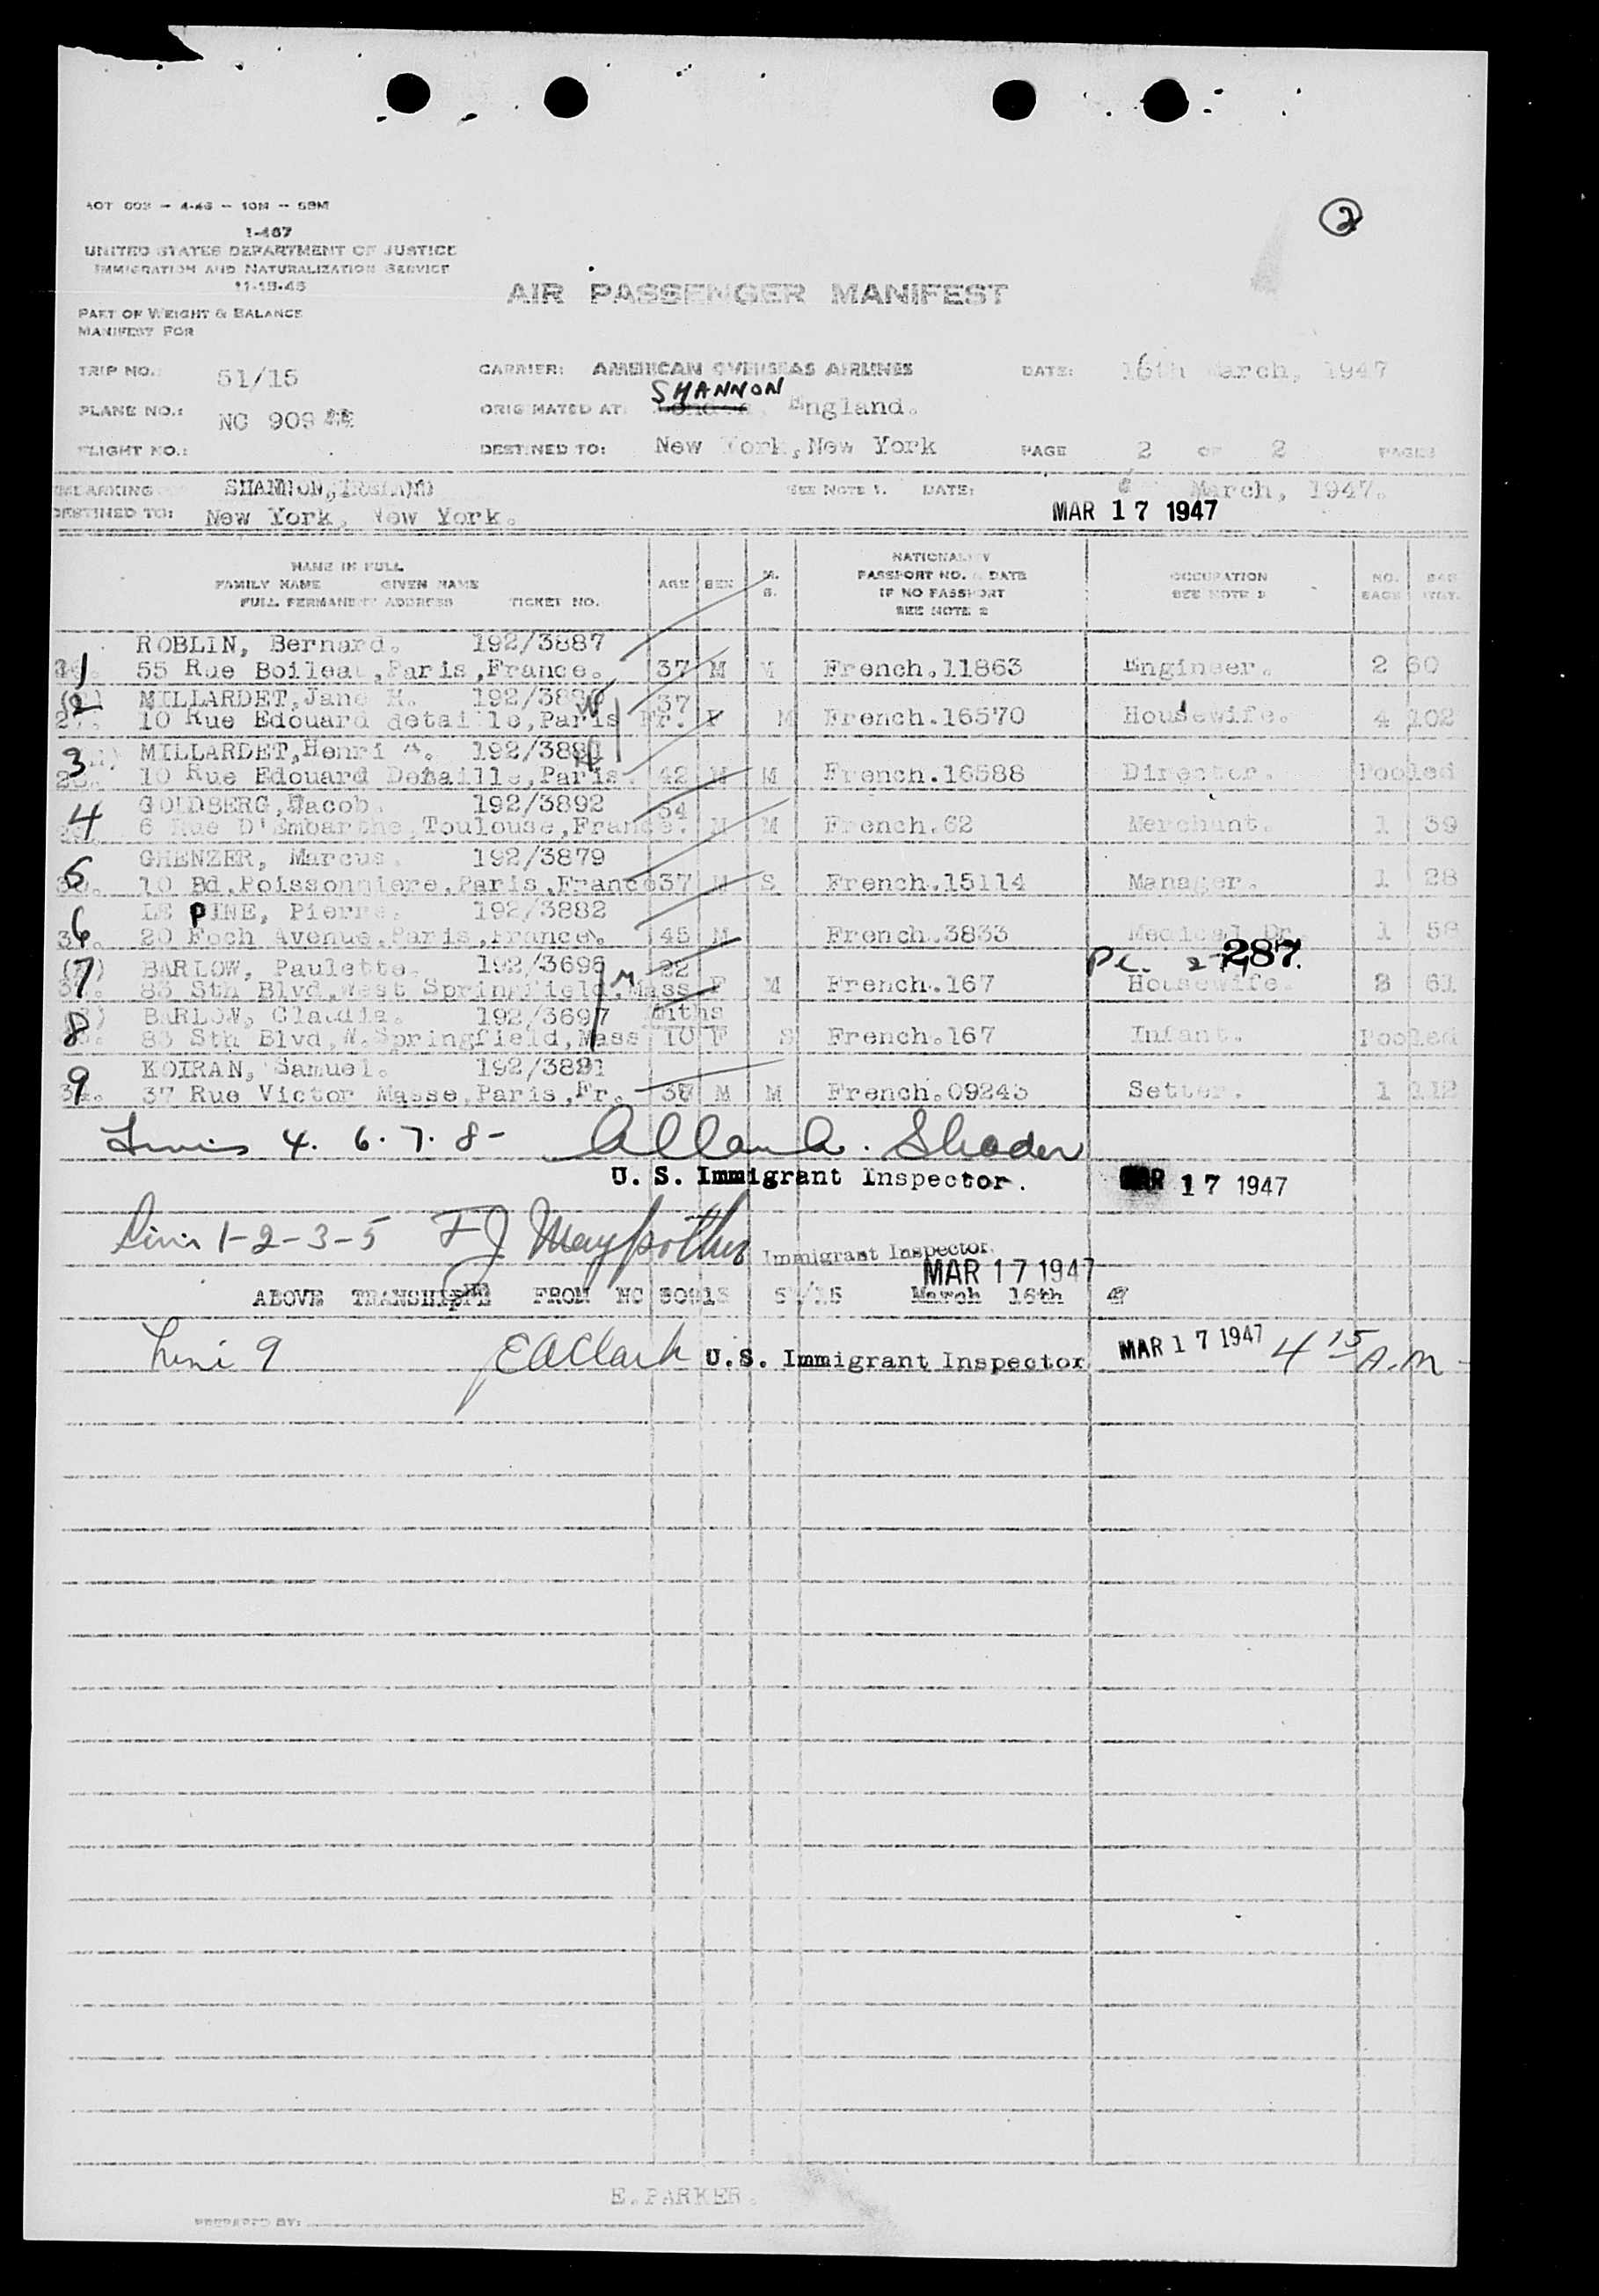 ②
1-467
UNITED STATES DEPARTMENT OF JUSTICE
IMMIGRATION AND NATURALIZATION SERVICE
11-15-45
AIR PASSENGER MANIFEST
PART OF WEIGHT & BALANCE
MANIFEST FOR
TRIP NO. 51/15 CARRIER: AMERICAN OVERSEAS AIRLINES DATE: 16th March, 1947
SHANNON
PLANE NO.: NC 909 ORIGINATED AT England.
FLIGHT NO.: DESTINED TO: New York, New York PAGE 2 OF 2 PAGES
EMBARKING SHANNON, SEE NOTE 1. DATE: March, 1947.
DESTINED TO: New York, New York. MAR 17 1947
NAME IN FULL
FAMILY NAME GIVEN NAME
FULL PERMANENT ADDRESS TICKET NO. AGE SEX M. S. NATIONALITY PASSPORT NO. & DATE IF NO PASSPORT SEE NOTE 2 OCCUPATION SEE NOTE 3 NO. BAGS BAG WGT.
ROBLIN, Bernard. 192/3887
1 55 Rue Boileau, Paris, France. 37 M M French.11863 Engineer. 2 60
2 MILLARDET, Jane H. W 37
10 Rue Edouard detaille, Paris Fr. F M French.16570 Housewife. 4 102
3 MILLARDET, Henri A. 192/3881
10 Rue Edouard Detaille, Paris. 42 M M French.16588 Director. Pooled
4 GOLDBERG, Jacob. 192/3892 54
6 Rue D'Embarthe, Toulouse, France. M M French.62 Merchant. 1 39
5 GHENZER, Marcus. 192/3879
10 Bd. Poissonniere, Paris, France 37 M S French.15114 Manager. 1 28
6 LE PINE, Pierre. 192/3882
20 Foch Avenue, Paris, France. 45 M French.3833 Medical Dr. 1 58
287.
7 BARLOW, Paulette. 192/3696 22
83 Sth Blvd, West Springfield, Mass F M French.167 Housewife. 3 61
8 BARLOW, Claudia. 192/3697 mths
83 Sth Blvd, W. Springfield, Mass 10 F S French.167 Infant. Pooled
9 KOIRAN, Samuel.
37 Rue Victor Masse, Paris, Fr. M M French.09243 Setter. 1 112
Lines 4. 6. 7. 8- Allan A. Shader
U. S. Immigrant Inspector. MAR 17 1947
Lines 1-2-3-5 Immigrant Inspector.
MAR 17 1947
ABOVE FROM NC 90913 51/15 March 16th 47
Line 9 E A Clark U.S. Immigrant Inspector MAR 17 1947 4 15 A.M-
E. PARKER.
PREPARED BY: